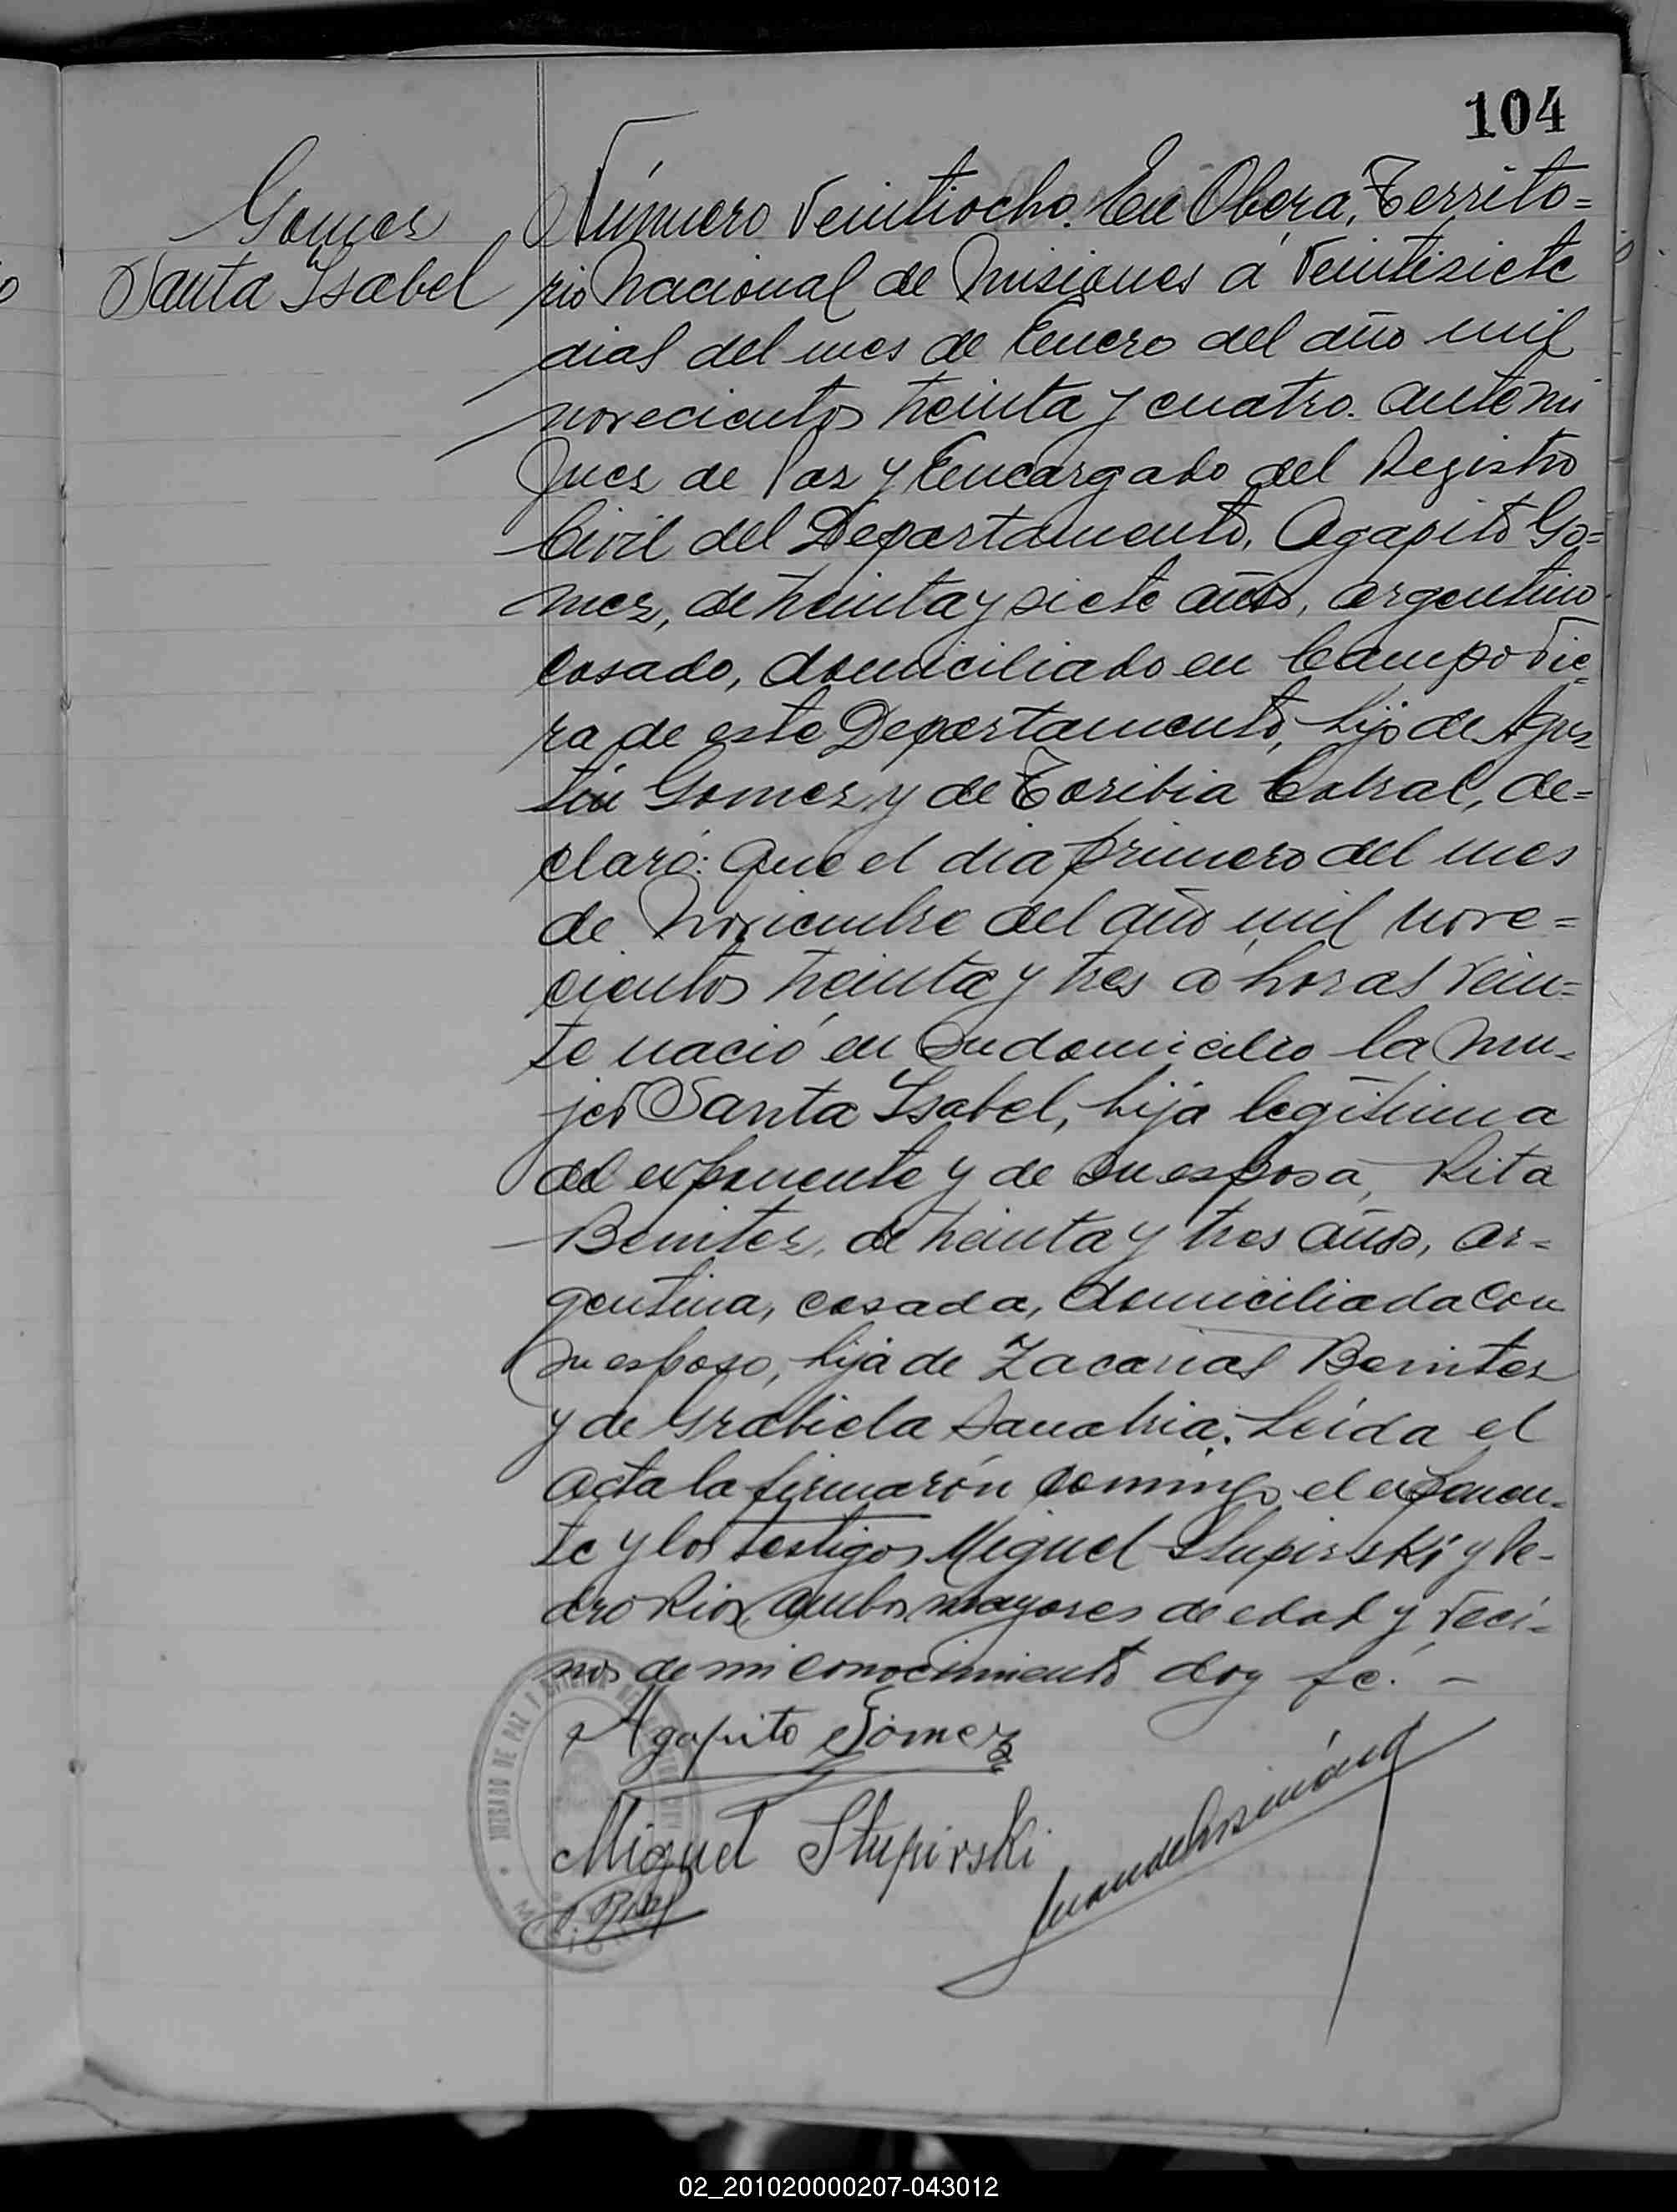 104
Gomez
Santa Isabel
Número veintiocho. En Obera, Territo=
rio Nacional de Misiones a veintisiete
dias del mes de Enero del año mil
novecientos treinta y cuatro. ante mi
Juez de Paz y Encargado del Registro
Civil del Departamento, Agapito Go=
mez, de treinta y siete años, argentino
casado, domiciliado en Campo Vie-
ra de este Departamento, hijo de Agus-
tin Gomez y de Toribia Cabral, de=
claró: Que el dia primero del mes
de Noviembre del año mil nove=
cientos treinta y tres a horas vein=
te nació en su domicilio la mu-
jer Santa Isabel, hija legitima
del exponente y de su esposa, Rita
Benitez, de treinta y tres años, ar=
gentina, casada, domiciliada con
su esposo, hija de Zacarias Benitez
y de Grabiela Sanabria. Leída el
acta la firmarón conmigo el exponen-
te y los testigos Miguel Stupirski y Pe-
dro Rios, ambos mayores de edad y veci-
nos de mi conocimiento doy fe. -
Agapito Gómez
Miguel Stupirski
JUZGADO DE PAZ
02_201020000207-043012